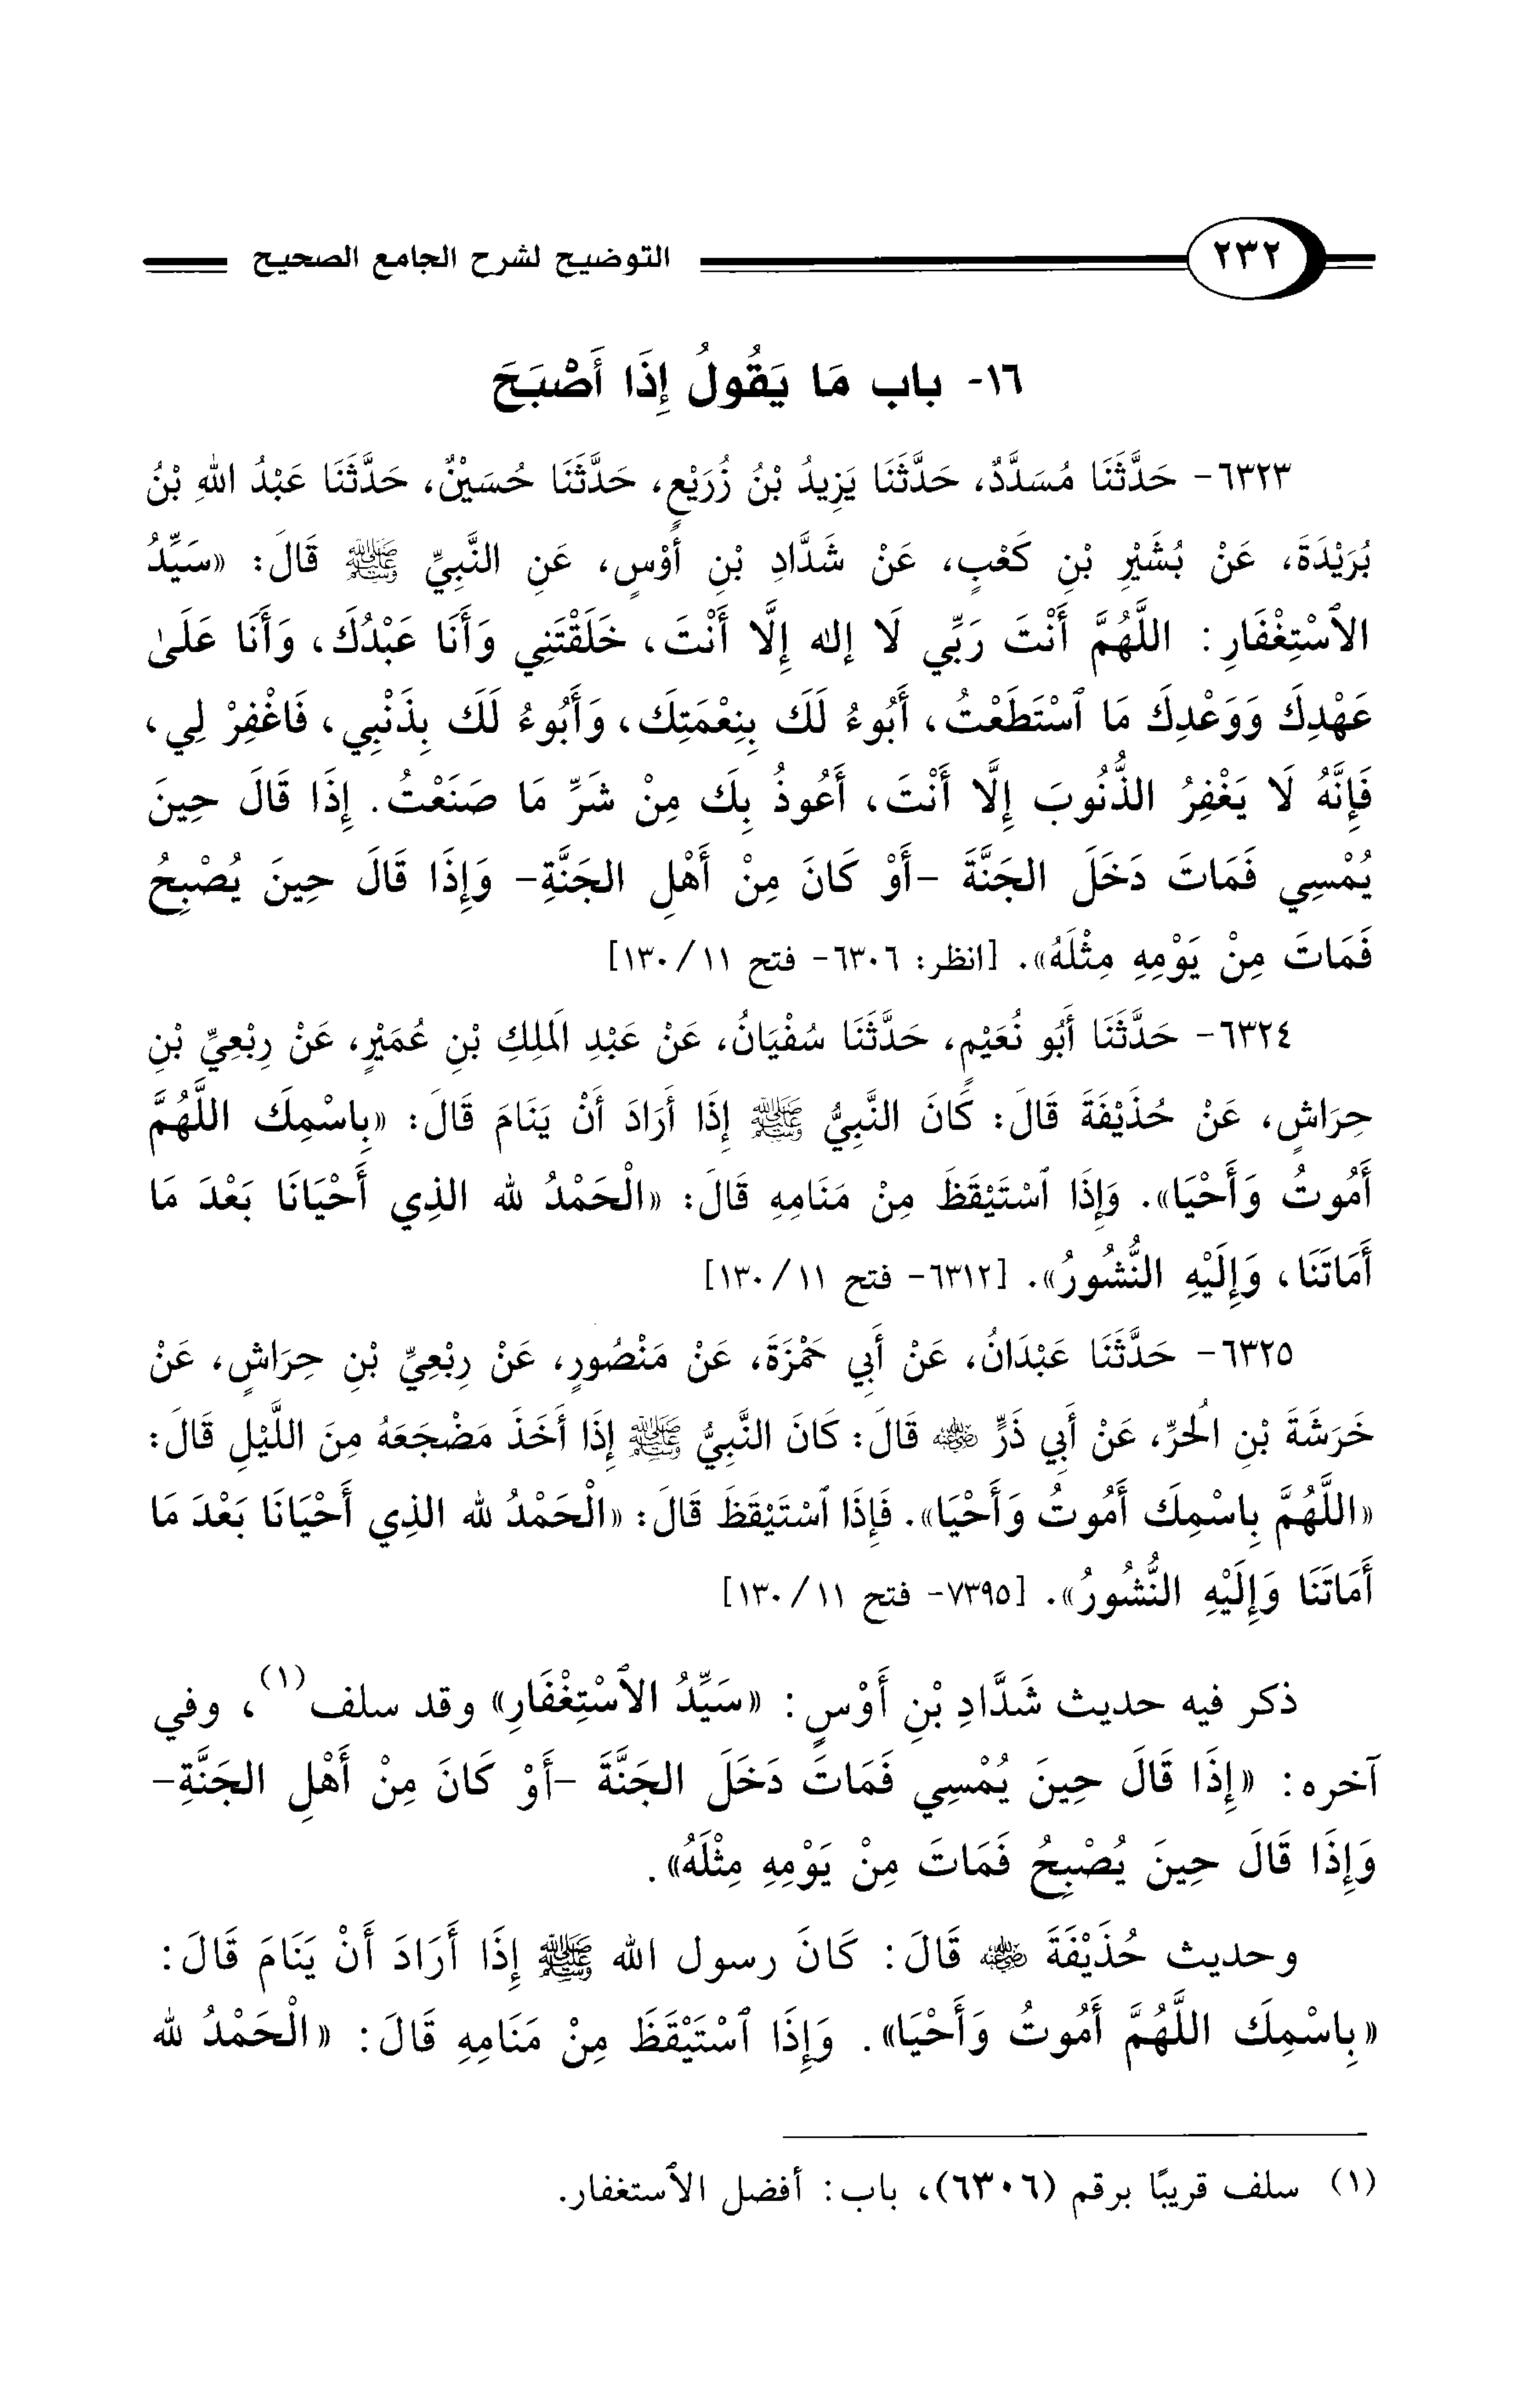 ٢٣٢ التوضيح لشرح الجامع الصحيح
١٦- باب مَا يَقُولُ إِذَا أَصْبَحَ
٦٣٢٣- حَدَّثَنَا مُسَدَّدٌ، حَدَّثَنَا يَزِيدُ بْنُ زُرَيْعٍ، حَدَّثَنَا حُسَيْنٌ، حَدَّثَنَا عَبْدُ اللهِ بْنُ
بُرَيْدَةَ، عَنْ بُشَيْرِ بْنِ كَعْبٍ، عَنْ شَدَّادِ بْنِ أَوْسٍ، عَنِ النَّبِيِّ ﷺ قَالَ: «سَيِّدُ
الاَسْتِغْفَارِ: اللَّهُمَّ أَنْتَ رَبِّي لَا إله إِلَّا أَنْتَ، خَلَقْتَنِي وَأَنَا عَبْدُكَ، وَأَنَا عَلَىٰ
عَهْدِكَ وَوَعْدِكَ مَا ٱسْتَطَعْتُ، أَبُوءُ لَكَ بِنِعْمَتِكَ، وَأَبُوءُ لَكَ بِذَنْبِي، فَاغْفِرْ لِي،
فَإِنَّهُ لَا يَغْفِرُ الذُّنُوبَ إِلَّا أَنْتَ، أَعُوذُ بِكَ مِنْ شَرِّ مَا صَنَعْتُ. إِذَا قَالَ حِينَ
يُمْسِي فَمَاتَ دَخَلَ الجَنَّةَ -أَوْ كَانَ مِنْ أَهْلِ الجَنَّةِ- وَإِذَا قَالَ حِينَ يُصْبِحُ
فَمَاتَ مِنْ يَوْمِهِ مِثْلَهُ». [انظر: ٦٣٠٦- فتح ١١/ ١٣٠]
٦٣٢٤- حَدَّثَنَا أَبُو نُعَيْمٍ، حَدَّثَنَا سُفْيَانُ، عَنْ عَبْدِ الَملِكِ بْنِ عُمَيْرٍ، عَنْ رِبْعِيِّ بْنِ
حِرَاشٍ، عَنْ حُذَيْفَةَ قَالَ: كَانَ النَّبِيُّ ﷺ إِذَا أَرَادَ أَنْ يَنَامَ قَالَ: «بِاسْمِكَ اللَّهُمَّ
أَمُوتُ وَأَحْيَا». وَإِذَا ٱسْتَيْقَظَ مِنْ مَنَامِهِ قَالَ: «الْحَمْدُ لله الذِي أَحْيَانَا بَعْدَ مَا
أَمَاتَنَا، وَإِلَيْهِ النُّشُورُ». [٦٣١٢- فتح ١١/ ١٣٠]
٦٣٢٥- حَدَّثَنَا عَبْدَانُ، عَنْ أَبِي حَمْزَةَ، عَنْ مَنْصُورٍ، عَنْ رِبْعِيِّ بْنِ حِرَاشٍ، عَنْ
خَرَشَةَ بْنِ الُحرِّ، عَنْ أَبِي ذَرٍّ ﵁ قَالَ: كَانَ النَّبِيُّ ﷺ إِذَا أَخَذَ مَضْجَعَهُ مِنَ اللَّيْلِ قَالَ:
«اللَّهُمَّ بِاسْمِكَ أَمُوتُ وَأَحْيَا». فَإِذَا ٱسْتَيْقَظَ قَالَ: «الْحَمْدُ لله الذِي أَحْيَانَا بَعْدَ مَا
أَمَاتَنَا وَإِلَيْهِ النُّشُورُ». [٧٣٩٥- فتح ١١/ ١٣٠]
ذكر فيه حديث شَدَّادِ بْنِ أَوْسٍ: «سَيِّدُ الاَسْتِغْفَارِ» وقد سلف(١)، وفي
آخره: «إِذَا قَالَ حِينَ يُمْسِي فَمَاتَ دَخَلَ الجَنَّةَ -أَوْ كَانَ مِنْ أَهْلِ الجَنَّةِ-
وَإِذَا قَالَ حِينَ يُصْبِحُ فَمَاتَ مِنْ يَوْمِهِ مِثْلَهُ».
وحديث حُذَيْفَةَ ﵁ قَالَ: كَانَ رسول الله ﷺ إِذَا أَرَادَ أَنْ يَنَامَ قَالَ:
«بِاسْمِكَ اللَّهُمَّ أَمُوتُ وَأَحْيَا». وَإِذَا ٱسْتَيْقَظَ مِنْ مَنَامِهِ قَالَ: «الْحَمْدُ لله
(١) سلف قريبًا برقم (٦٣٠٦)، باب: أفضل الاَستغفار.